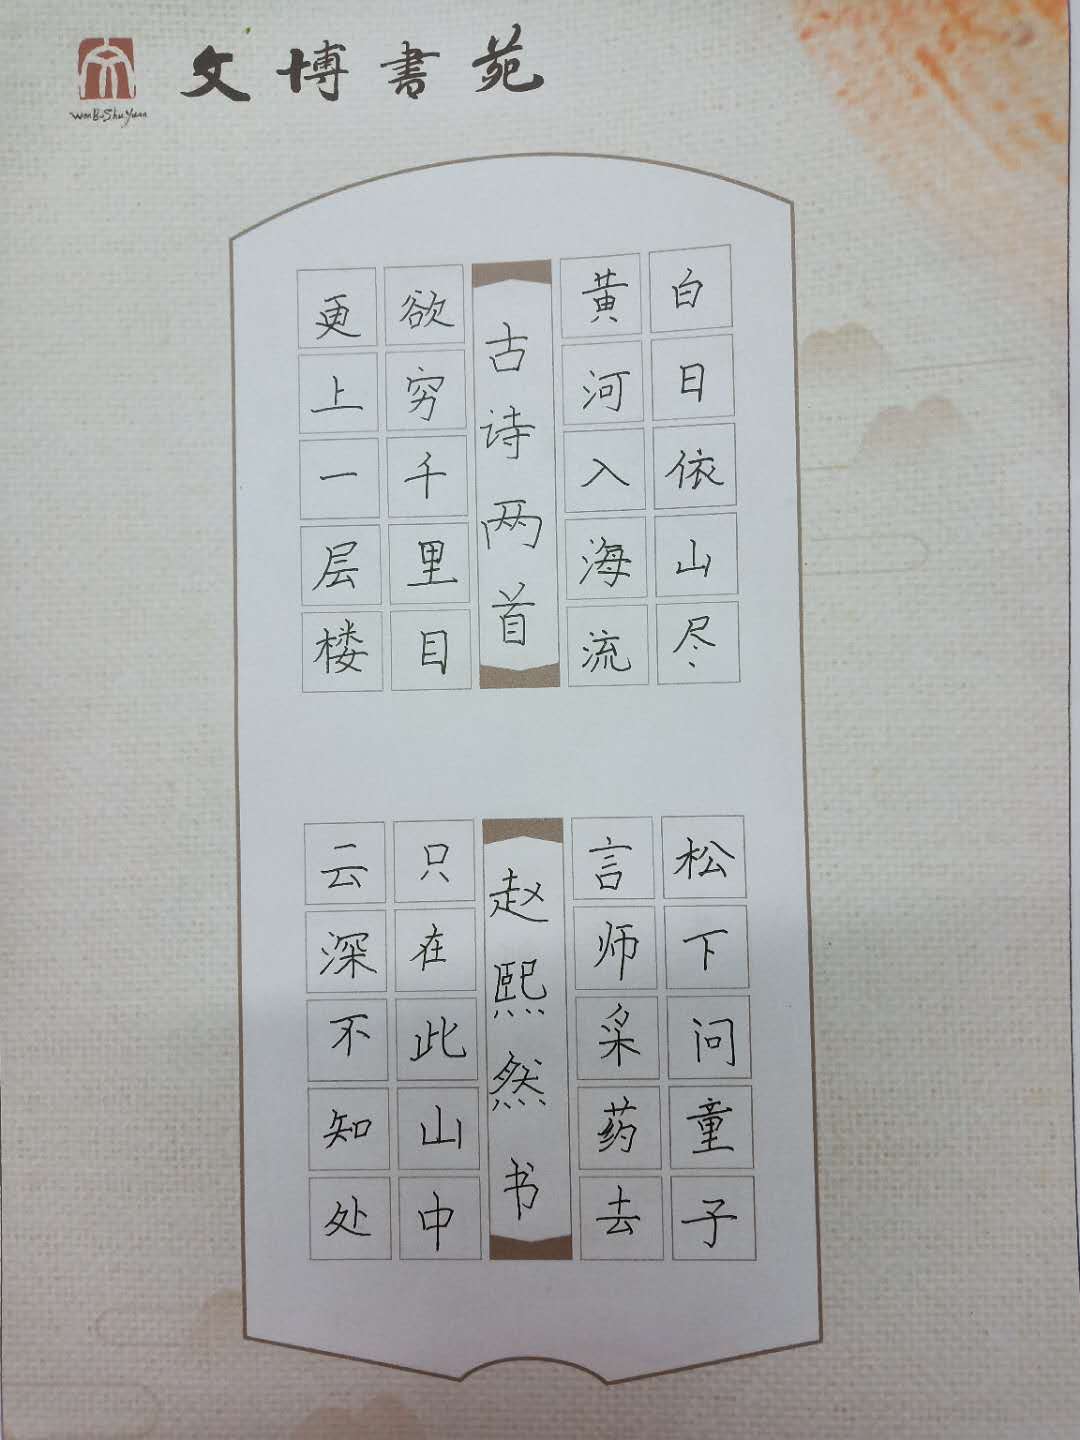 文博書苑
WenBoShuYuan
白日依山尽
黄河入海流
古诗两首
欲穷千里目
更上一层楼
松下问童子
言师采药去
赵熙然书
只在此山中
云深不知处